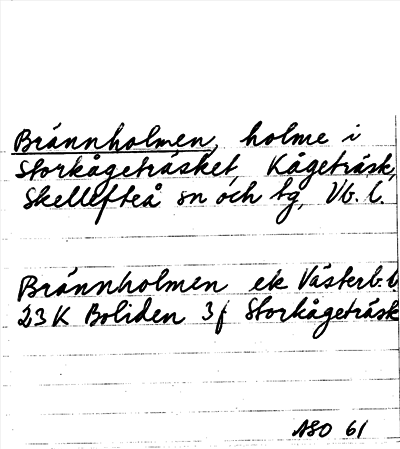 Brännholmen, holme i
Storkågeträsket, Kågeträsk,
Skellefteå sn och tg, Vb. l.
Brännholmen ek Västerb. l
23 K Boliden 3 f Storkågeträsk
ASO 61